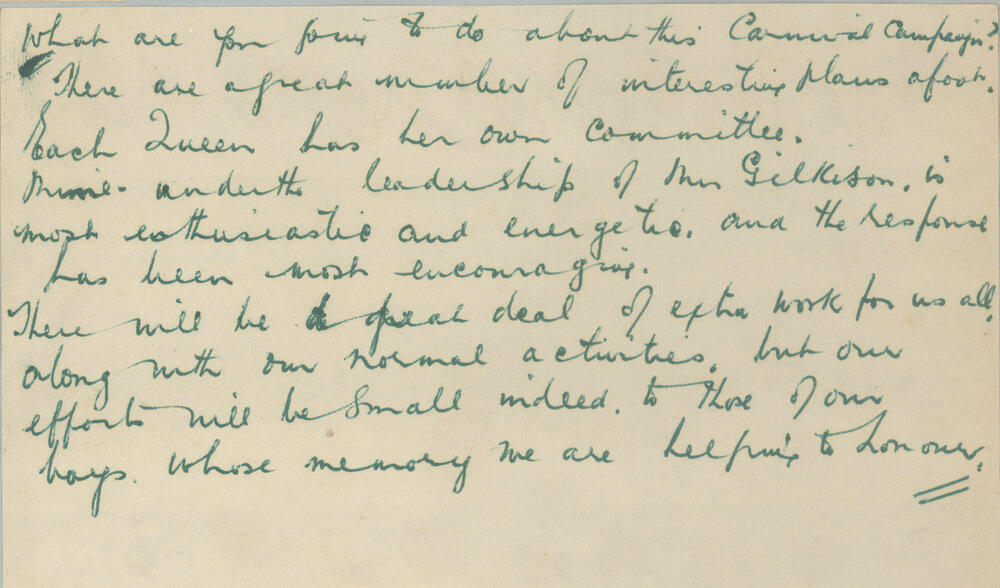 What are you going to do about this Carnival Campaign?
There are a great number of interesting plans afoot.
Each Queen has her own committee.
Mine under the leadership of Mrs Gilkison, is
most enthusiastic and energetic, and the response
has been most encouraging.
There will be a great deal of extra work for us all,
along with our normal activities, but our
efforts will be small indeed, to those of our
boys. whose memory we are helping to honour.